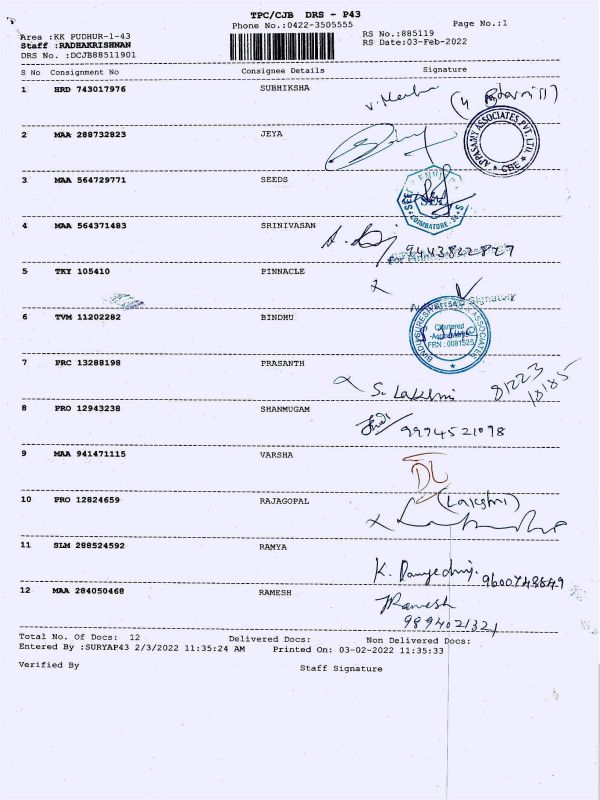 TPC/CJB DRS - P43
Phone No.:0422-3505555
Page No.:1
Area :KK PUDHUR-1-43
RS No.:885119
Staff :RADHAKRISHNAN
RS Date:03-Feb-2022
DRS No. :DCJB88511901
S No Consignment No Consignee Details Signature
1 HRD 743017976 SUBHIKSHA
APPASAMY ASSOCIATES PVT. LTD. CBE
2 MAA 288732823 JEYA
3 MAA 564729771 SEEDS
COIMBATORE
4 MAA 564371483 SRINIVASAN
9443822827
5 TKY 105410 PINNACLE
Signatory
6 TVM 11202282 BINDHU
Chartered
FRN : 008152S
ASSOCIATES
7 PRC 13288198 PRASANTH
81223
18185
8 PRO 12943238 SHANMUGAM
9994521098
9 MAA 941471115 VARSHA
DL
10 PRO 12824659 RAJAGOPAL
(Lakshmi)
11 SLM 288524592 RAMYA
9600748849
12 MAA 284050468 RAMESH
Ramesh
9894021321
Total No. Of Docs: 12 Delivered Docs: Non Delivered Docs:
Entered By :SURYAP43 2/3/2022 11:35:24 AM Printed On: 03-02-2022 11:35:33
Verified By Staff Signature